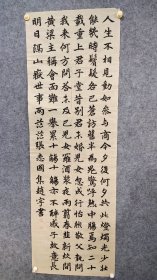 人生不相見動如參與商今夕復何夕共此燈燭光少壯
能幾時鬢髮各已蒼訪舊半為鬼驚呼熱中腸焉知二十
載重上君子堂昔別君未婚兒女忽成行怡然敬父執問
我來何方問答未及已兒女羅酒漿夜雨剪春韭新炊間
黃粱主稱會面難一舉累十觴十觴亦不醉感子故意長
明日隔山嶽世事兩茫茫張忠國集趙字書